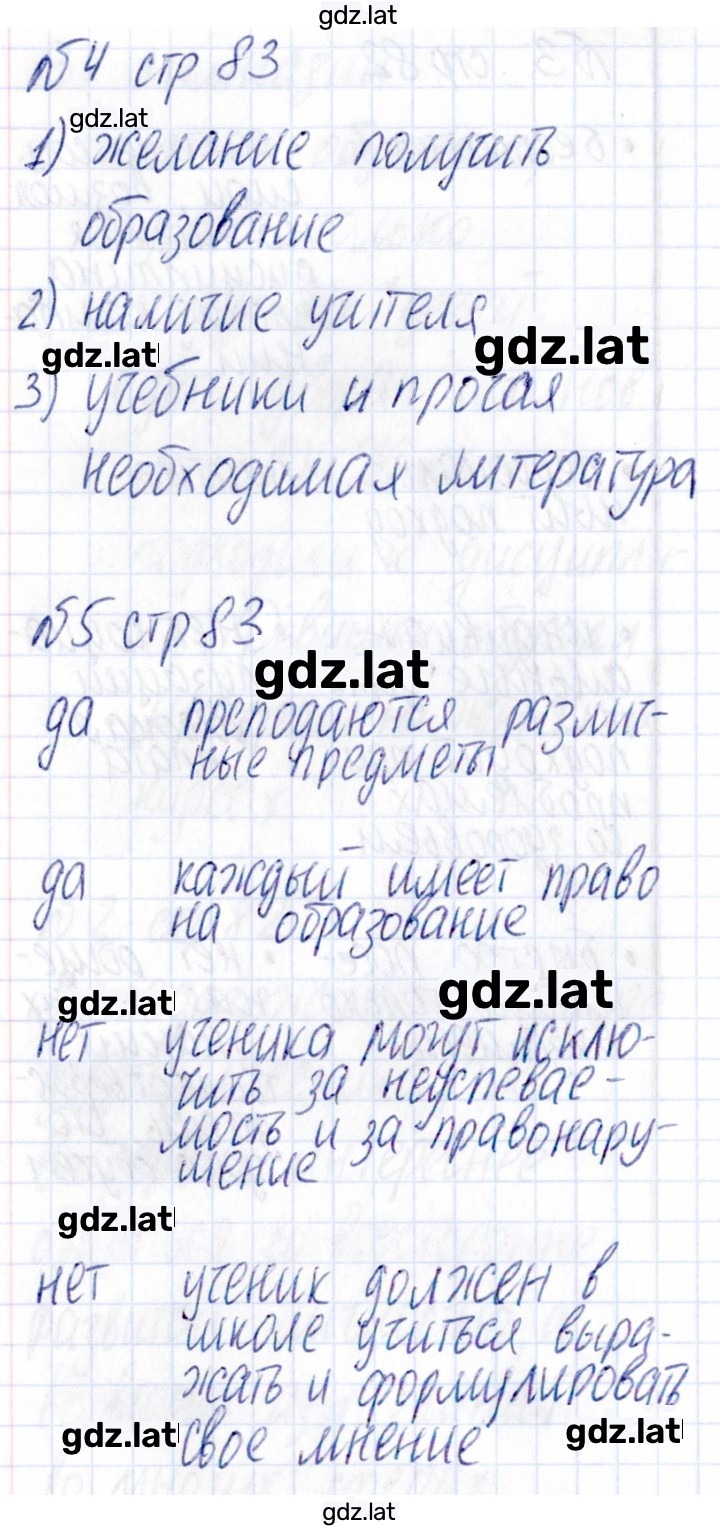 gdz.lat
№4 стр 83
gdz.lat
1) желание получить
образование
2) наличие учителя
gdz.lat gdz.lat
3) учебники и прочая
необходимая литература
№5 стр 83
gdz.lat
да преподаются различ-
ные предметы
да каждый имеет право
на образование
gdz.lat gdz.lat
нет ученика могут исклю-
чить за неуспевае-
мость и за правонару-
шение
gdz.lat
нет ученик должен в
школе учиться выра-
жать и формулировать
gdz.lat свое мнение gdz.lat
gdz.lat